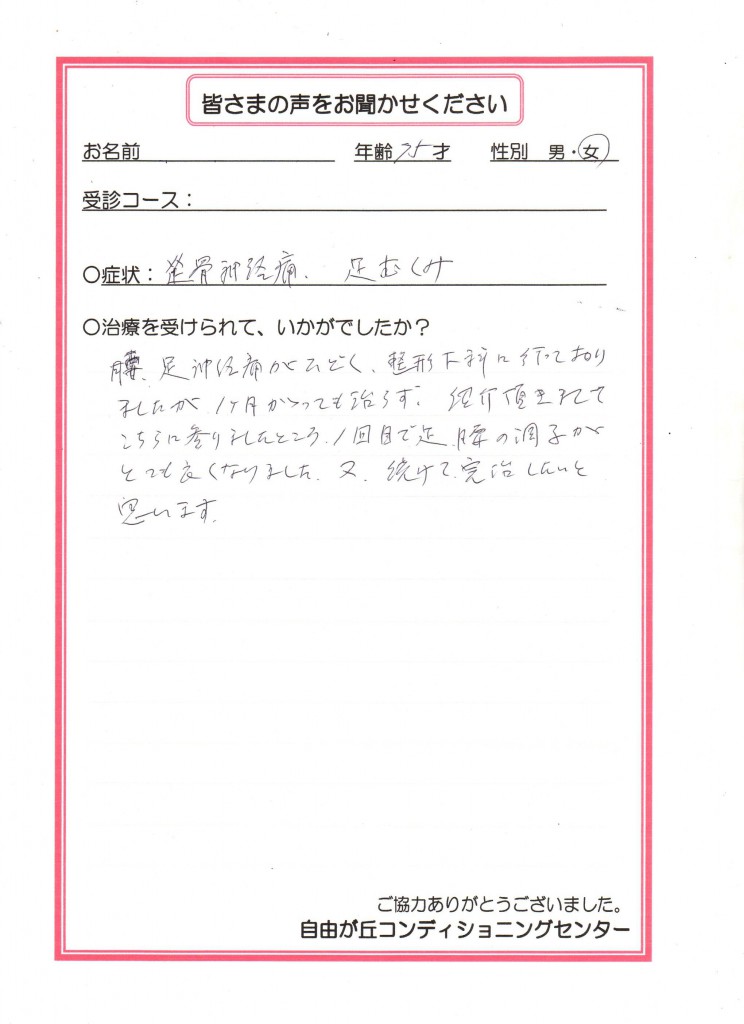 皆さまの声をお聞かせください
お名前 年齢 75 才 性別 男・女
受診コース：
○症状： 坐骨神経痛、 足むくみ
○治療を受けられて、いかがでしたか？
腰、足神経痛がひどく、整形外科に行っており
ましたが、1ヶ月かよっても治らず、紹介頂きまして
こちらに参りましたところ、1回目で足、腰の調子が
とても良くなりました、又、続けて、完治したいと
思います。
ご協力ありがとうございました。
自由が丘コンディショニングセンター